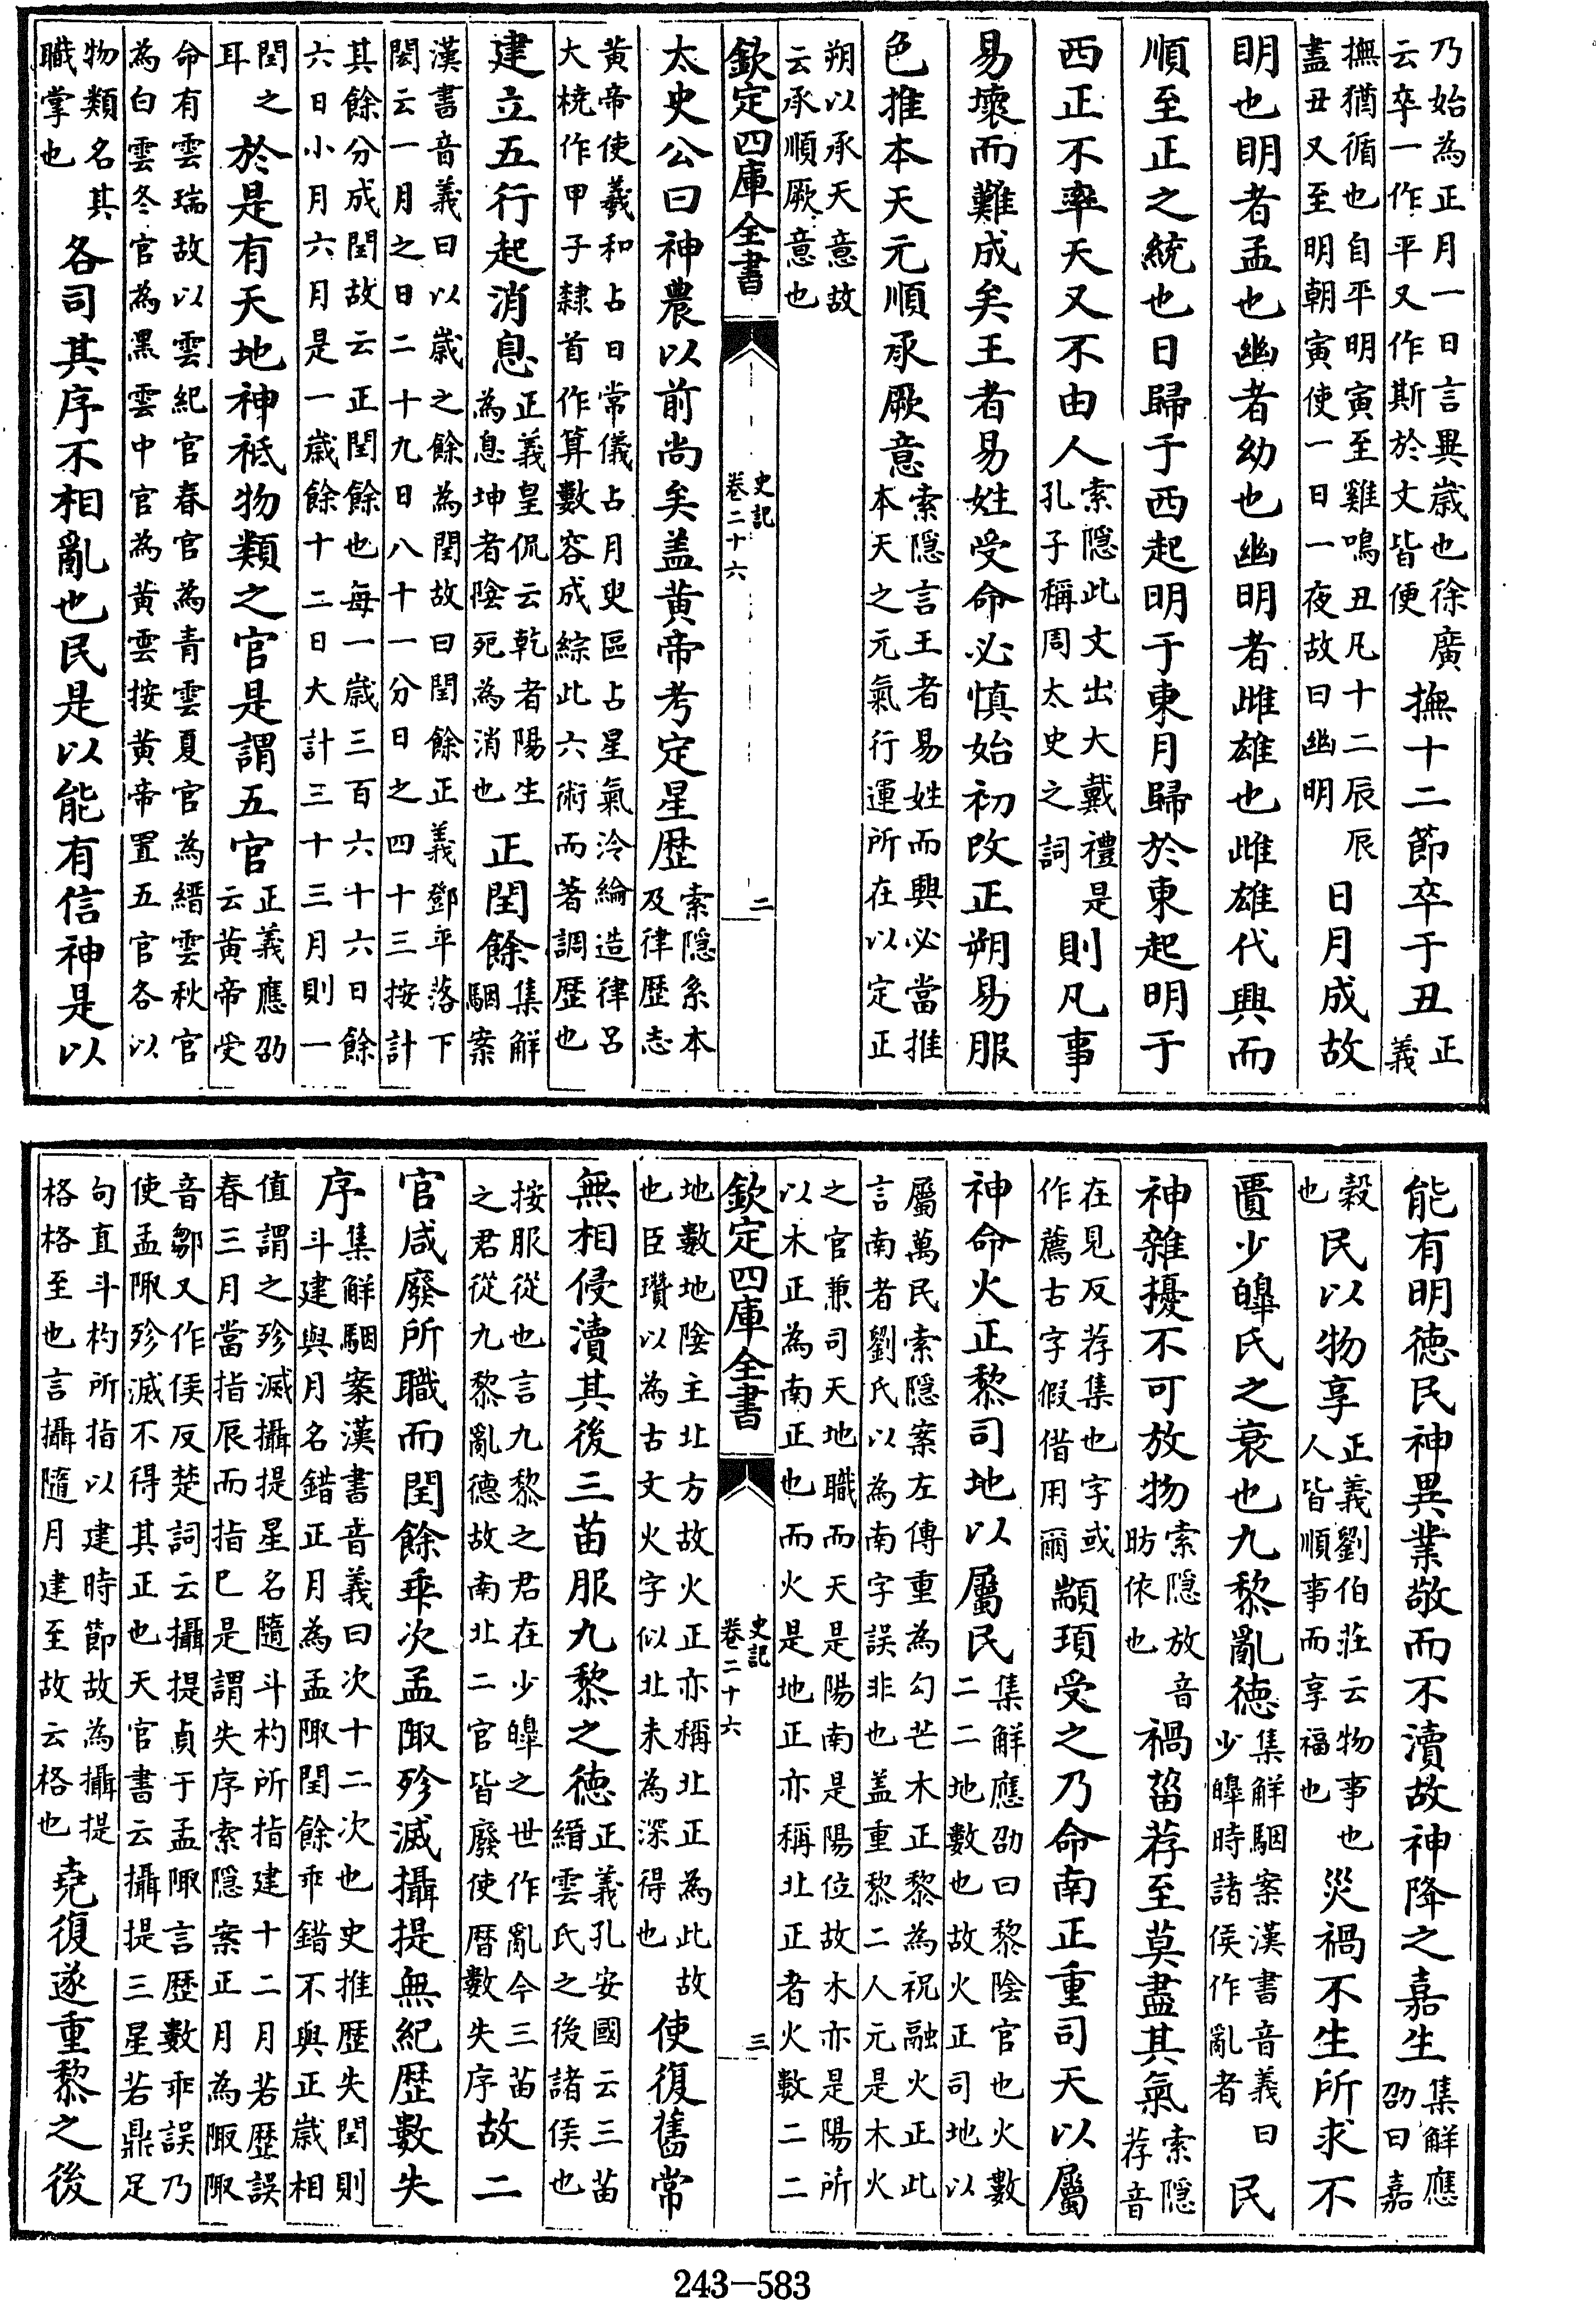 乃始為正月一日言異歲也徐廣
云卒一作平又作斯於文皆便
撫十二節卒于丑
正義
撫猶循也自平明寅至雞鳴丑凡十二辰辰
盡丑又至明朝寅使一日一夜故曰幽明
日月成故
明也明者孟也幽者幼也幽明者雌雄也雌雄代興而
順至正之統也日歸于西起明于東月歸於東起明于
西正不率天又不由人
索隱此文出大戴禮是
孔子稱周太史之詞
則凡事
易壞而難成矣王者易姓受命必慎始初改正朔易服
色推本天元順承厥意
索隱言王者易姓而興必當推
本天之元氣行運所在以定正
朔以承天意故
云承順厥意也
欽定四庫全書
史記
卷二十六
二
太史公曰神農以前尚矣蓋黃帝考定星歷
索隱系本
及律歷志
黃帝使羲和占日常儀占月臾區占星氣泠綸造律呂
大橈作甲子隸首作算數容成綜此六術而著調歷也
建立五行起消息
正義皇侃云乾者陽生
為息坤者陰死為消也
正閏餘
集解
駰案
漢書音義曰以歲之餘為閏故曰閏餘正義鄧平落下
閎云一月之日二十九日八十一分日之四十三按計
其餘分成閏故云正閏餘也每一歲三百六十六日餘
六日小月六月是一歲餘十二日大計三十三月則一
閏之
耳
於是有天地神祇物類之官是謂五官
正義應劭
云黃帝受
命有雲瑞故以雲紀官春官為青雲夏官為縉雲秋官
為白雲冬官為黑雲中官為黃雲按黃帝置五官各以
物類名其
職掌也
各司其序不相亂也民是以能有信神是以
能有明德民神異業敬而不瀆故神降之嘉生
集解應
劭曰嘉
穀
也
民以物享
正義劉伯莊云物事也
人皆順事而享福也
災禍不生所求不
匱少皞氏之衰也九黎亂德
集解駰案漢書音義曰
少皞時諸侯作亂者
民
神雜擾不可放物
索隱放音
昉依也
禍菑荐至莫盡其氣
索隱
荐音
在見反荐集也字或
作薦古字假借用爾
顓頊受之乃命南正重司天以屬
神命火正黎司地以屬民
集解應劭曰黎陰官也火數
二二地數也故火正司地以
屬萬民索隱案左傳重為勾芒木正黎為祝融火正此
言南者劉氏以為南字誤非也蓋重黎二人元是木火
之官兼司天地職而天是陽南是陽位故木亦是陽所
以木正為南正也而火是地正亦稱北正者火數二二
地數地陰主北方故火正亦稱北正為此故
也臣瓚以為古文火字似北未為深得也
欽定四庫全書
史記
卷二十六
三
使復舊常
無相侵瀆其後三苗服九黎之德
正義孔安國云三苗
縉雲氏之後諸侯也
按服從也言九黎之君在少皞之世作亂今三苗
之君從九黎亂德故南北二官皆廢使曆數失序
故二
官咸廢所職而閏餘乖次孟陬殄滅攝提無紀歷數失
序
集解駰案漢書音義曰次十二次也史推歷失閏則
斗建與月名錯正月為孟陬閏餘乖錯不與正歲相
值謂之殄滅攝提星名隨斗杓所指建十二月若歷誤
春三月當指辰而指巳是謂失序索隱案正月為陬陬
音鄒又作侯反楚詞云攝提貞于孟陬言歷數乖誤乃
使孟陬殄滅不得其正也天官書云攝提三星若鼎足
句直斗杓所指以建時節故為攝提
格格至也言攝隨月建至故云格也
堯復遂重黎之後
243-583